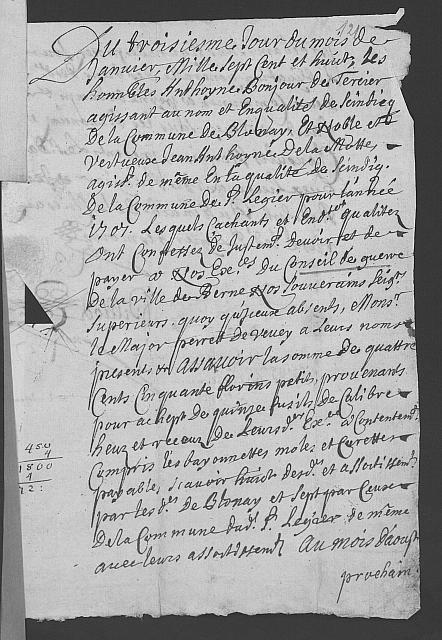 12
Du troisiesme Jour du mois de
Januier, Mille Sept Cent et huict, Les
honnbles Anthoyne Bonjour de Tercier
agissant au nom et En qualités de Scindicq
De la Commune de Blonay, Et Noble et
Vertueux Jean Anthoyne De la Mothe,
agist de même En la qualité de Scindig.
De la Commune de St. Legier pour l'année
1707. Les quels sachants et qualitez
ont Confessez de Justemt. Devoir et de
payer a Nos Exces. du Conseil de guerre
De la Ville de Berne Nos Souuerains Seigrs.
Superieurs, quoy qu'jceux absents, Monsr.
le Major perret de Veuey a Leurs noms
presents & assauoir la somme de quattre
Cents Cinquante florins petits, prouenants
pour achept de quinze fusils de Calibre
heuz et receuz De Leursd. Exces a Contentemt.
Compris les bayonnettes moles et Curettes
payable, Scauoir huict desd. et assortissemts
par lesds. de Blonay et Sept par Ceux
De la Commune dud. St. Legier de même
auec leurs assortissemts au mois d'aoust
prochain
450
4
1800
4
72: